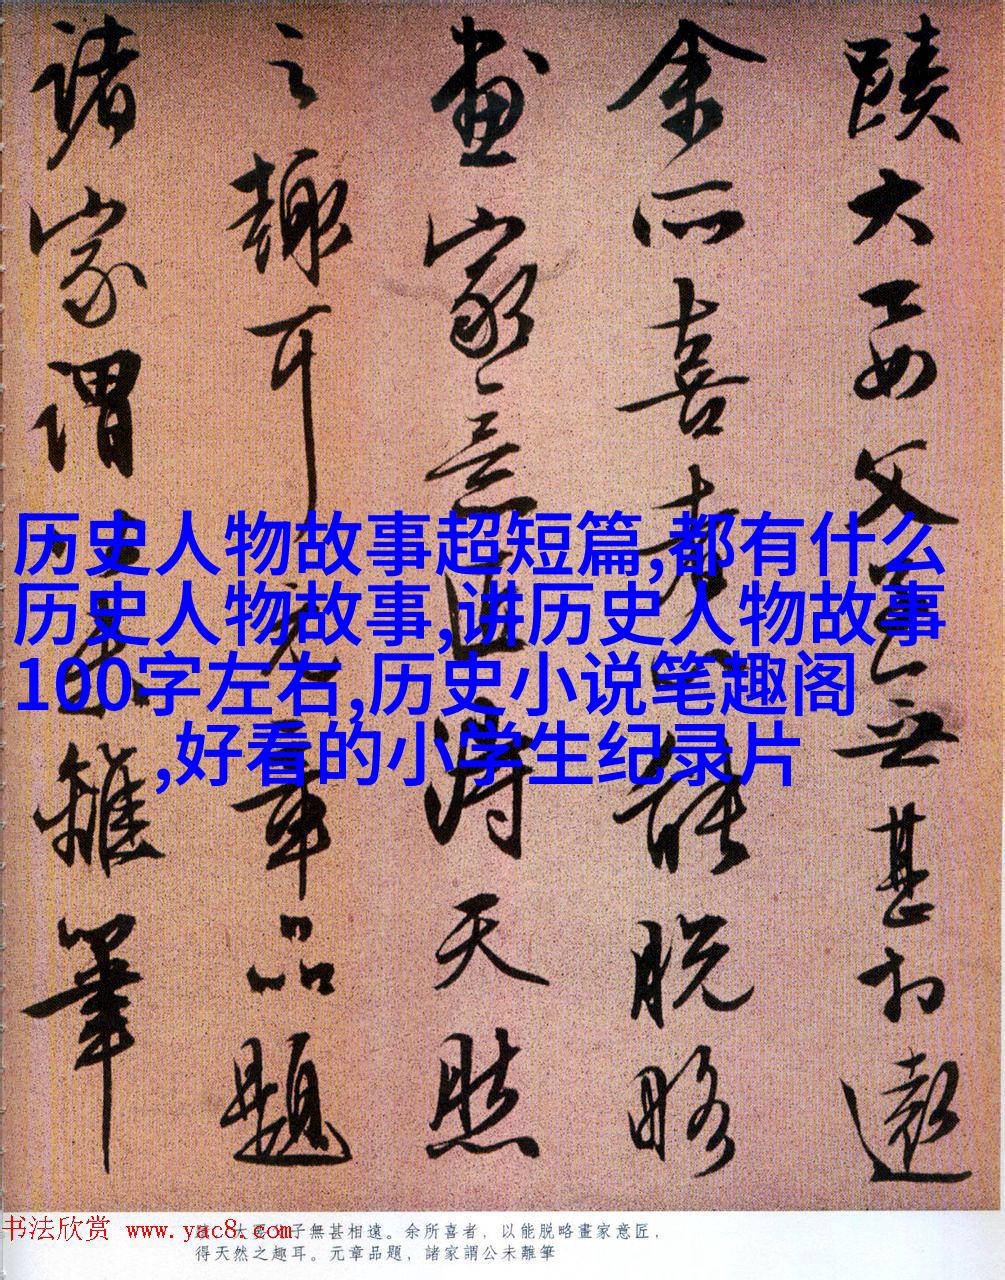 蹟大要父子無甚相遠
余所喜者以能脱略
畫家意匠得天然
之趣耳元章品題
諸家謂公未離筆
历史人物故事超短篇,都有什么
历史人物故事,讲历史人物故事
100字左右,历史小说笔趣阁
,好看的小学生纪录片
书法欣赏 www.yac8.com
大要父子無甚相遠。余所喜者，以能脱略畫家意匠，
得天然之趣耳。元章品題，諸家謂公未離筆